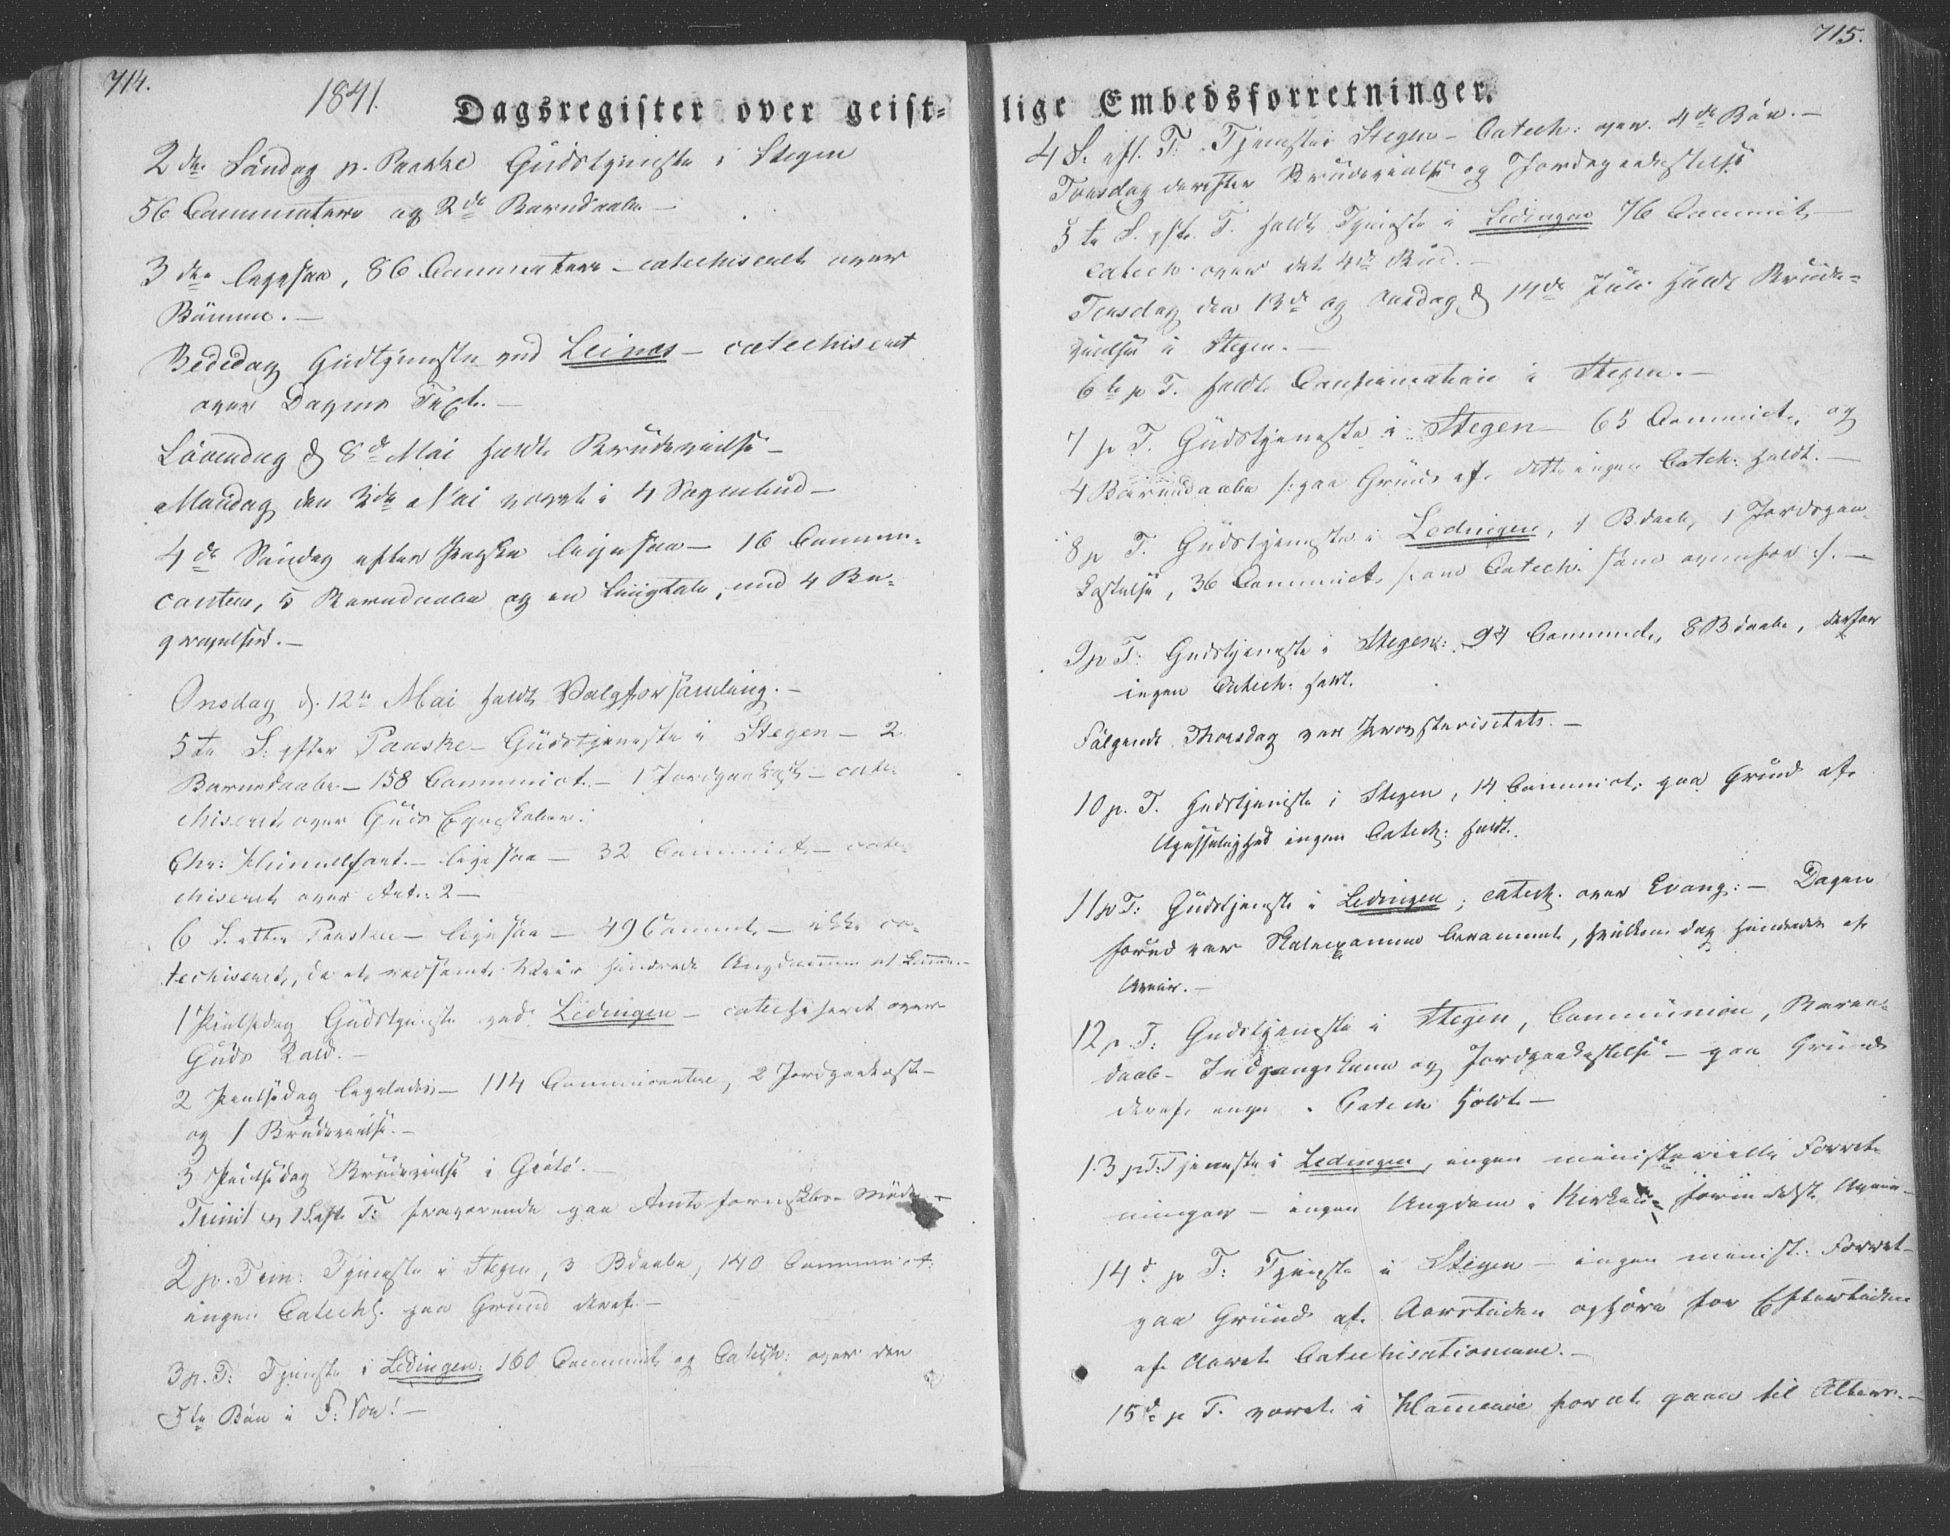 714.
1841.
Dagsregister over geist-
2den Søndag p. Paaske Gudstjeneste i Stegen
56 Communicantere og 2de Barndaabe. —
3die ligesaa, 86 Communicantere — catechiseret over
Bønnen. —
Bededag Gudtjeneste ved Leines — catechiseret
over Dagens Text. —
Løverdag d. 8de Mai holdt Brudevielse —
Mandag den 3die Mai været i 4 Sognebud —
4de Søndag efter Paaske ligesaa — 16 Commu-
canter, 5 Barnedaabe og en Liigtale, med 4 Be-
gravelser. —
Onsdag d. 12te Mai holdt Valgforsamling. —
5te S. efter Paaske — Gudstjeneste i Stegen — 2
Barnedaabe — 158 Communict. — 1 Jordpaakast — cate-
chiseret over Guds Egenskaber.
Chr: Himmelfart. — ligesaa — 32 Communict. — cate-
chiseret over Art: 2 —
6 S. efter Paaske — ligesaa — 49 Commt. — ikke ca-
techiseret, da et Veir hindrede Ungdommen at komme. —
1 Pintsedag Gudstjeneste ved Lødingen — catechiseret over
Guds
2 Pintsedag ligeledes — 114 Communicantere, 2 Jordpaakast-
og 1 Brudevielse. —
3 Pintsedag Brudevielse i
Trinit og 1 S. eft. T: fraværende paa Amtsformandskabs Møde —
2 p. Trin: Tjeneste i Stegen, 3 Bdaabe, 140 Communict:
ingen Catechs. paa Grund deraf. —
3 p. T: Tjeneste i Lødingen: 160 Communict og Catech: over den
5te Bøn i F: Vor! —
715.
lige Embedsforretninger.
4 S. eft. T: Tjeneste i Stegen — Catech: over 4de Bøn. —
Torsdag derefter Brudevielse og Jordpaakastelse
5te S. eft. T. holdt Tjeneste i Lødingen 76 Communict. —
catech. over det 4de Bud. —
Tirsdag den 13de og Onsdag d. 14de Juli holdt Brude-
vielser i Stegen. —
6te p T. holdt Confirmation i Stegen. —
7 p T. Gudstjeneste i Stegen — 65 Communict. og
4 Barnedaabe /: paa Grund af dette ingen Catch: holdt. —
8 p T. Gudstjeneste i Lødingen, 1 Bdaab, 1 Jordspaa-
kastelse, 36 Communict. Catech: som ovenfor :/. —
9 p T: Gudstjeneste i Stegen: 94 Communict, 8 Bdaabe, derfor
ingen Catech: holdt.
Følgende Thorsdag var Provstevisitats. —
10 p. T. Gudstjeneste i Stegen, 14 Communict: paa Grund af
Upasselighed ingen Catech: holdt.
11 p T: Gudstjeneste i Lødingen; catech. over Evang: — Dagen
forud var Skoleexamen berammet, hvilken dog hindredes af
Uveir. —
12 p. T: Gudstjeneste i Stegen, Communion, Barne-
daab — Indgangskone og Jordpaakastelse — paa Grund
deraf ingen Catech: holdt —
13 p T: Tjeneste i Lødingen, ingen ministerielle Forret-
ninger — ingen Ungdom i Kirken — formedelst Uveir —
14de p T: Tjeneste i Stegen — ingen minist. Forret-
paa Grund af Aarstiden ophøre for Eftertiden
af Aaret Catechisationerne. —
15de p T. været i Hammerøe for at gaae til Alters. —